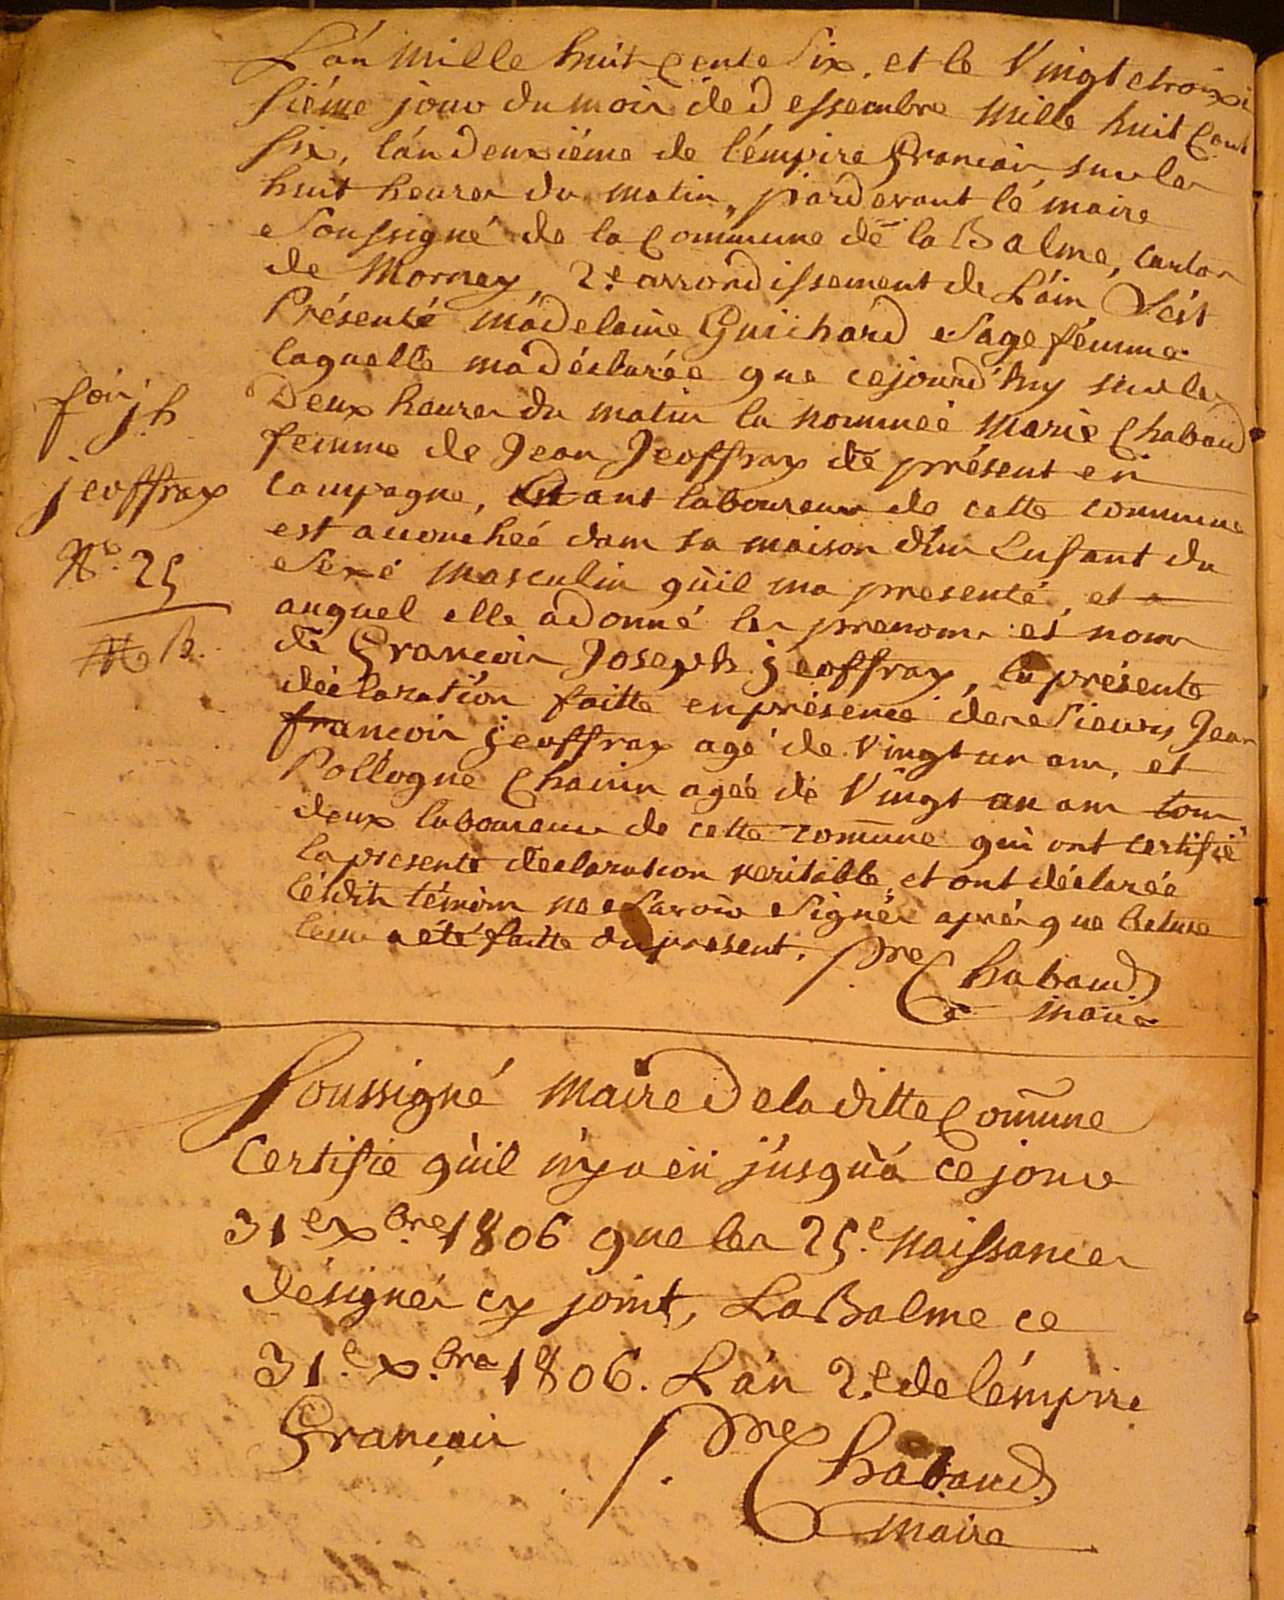 L'an mille huit cents six, et le vingt etroixi
siéme jour du mois de dessembre mille huit cent
six, l'an deuxiéme de l'émpire francois, sur les
huit heures du matin, pardevant lé maire
soussigné de la commune dé la Balme, canton
de Mornay, 2.e arrondissement de L'ain, S'ést
Présenté mádelaine Guichard sage fémme
laquelle ma déclarée que cejourd'huy sur les
Deux heures du matin la nommeé marie Chabaud
femme de Jean Jeoffray dé présent en
campagne, étant laboureur de cette commune
est accoucheé dans sa maison d'un Enfant du
Sexé masculin qùil ma presenté, et
auquel elle adonné les prenoms et nom
de François Joseph jeoffray, la présente
déclaration faitte enprésence des Sieurs Jean
francois jeoffray agé de vingt un ans, et
Pollogne Chainin agée dé vingt un ans tous
deux laboureurs de cette comune qui ont certifié
la presente declaration veritable, et ont déclarée
lésdits témoins ne savoir signér aprés que lecture
leur a été faitte du present.
P.re Chabaud
maire
fois j.h
jeoffray
N.o 25
Soussigné maire De la ditte Comune
Certifie qùil n'y a eü j'usqù'á ce jour
31.e xbre 1806 que les 25.e naissances
désignés cy joint, La Balme ce
31.e x.bre 1806. L'án 2.e de l'émpire
François
P.re Chabaud
maire